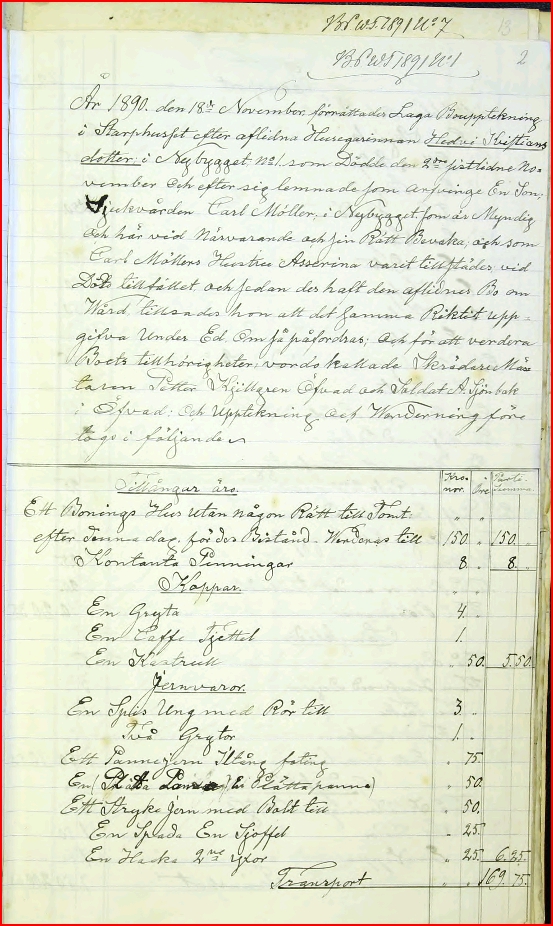 B.P. W5. 1891 No 7
13
B.P. W5 1891 No 1
2
År 1890. den 18de November förrättades Laga Bouptekning
i Starphuset efter aflidna Husegarinnan Hedvi Kristians
dotter; i Nybygget No 1. som Dödde den 2dre sistlidne No-
vember Och efter sig lemnade som arfvinge En Son;
Sjukvården Carl Möller; i Nybygget, som är Myndig
och här vid Närvarande och sin Rätt Bevaka; och som
Carl Möllers Hustru Asserina varit tillstädes vid
Döds tillfället och sedan des haft den aflidnes Bo om
Wård, tillsades hon att det samma Riktit upp-
gifva Under Ed. Om så påfordras; Och för att verdera
Boets tillhörigheter; vordo kallade Skrädare Mäs-
taren Petter Kjillgren Öfvad och Soldat A. Sjönbak
i Öfvad; Och Upptekning och Werderning före
togs i följande
Tillångar äro.
Kro-
nor.
Öre
Ett Bonings Hus utan någon Rätt till Tomt
efter denna dag, för des Bistånd - Werderas till 150 " 150. "
Kontanta Penningar 8 " 8. "
Koppar.
En Gryta 4. "
En Caffe Tjettel 1. "
En Kastrull " 50. 5.50.
Jernvaror.
En Spis Ung med Rör till 3. "
Två Grytor 1. "
Ett Pannejern Eltång foting " 75.
En (Plåtta panna) " 50.
Ett Stryke jern med Bolt till " 50.
En Spada En Sjöffel " 25.
En Hacka 2ne yxor " 25. 6.25.
Transport " " 169. 75.